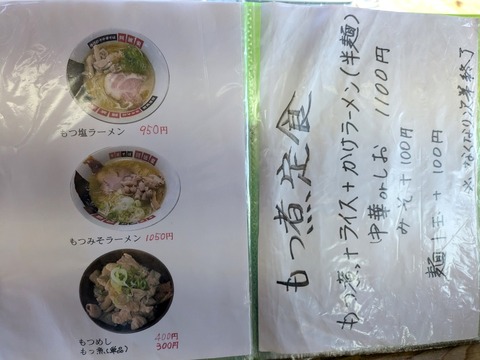 もつ塩ラーメン 950円
もつみそラーメン 1050円
もつめし 400円
もつ煮(単品) 300円
もつ煮定食
もつ煮+ライス+かけラーメン(半麺)
中華orしお 1100円
みそ+100円
麺1玉+100円
※なくなり次第終了